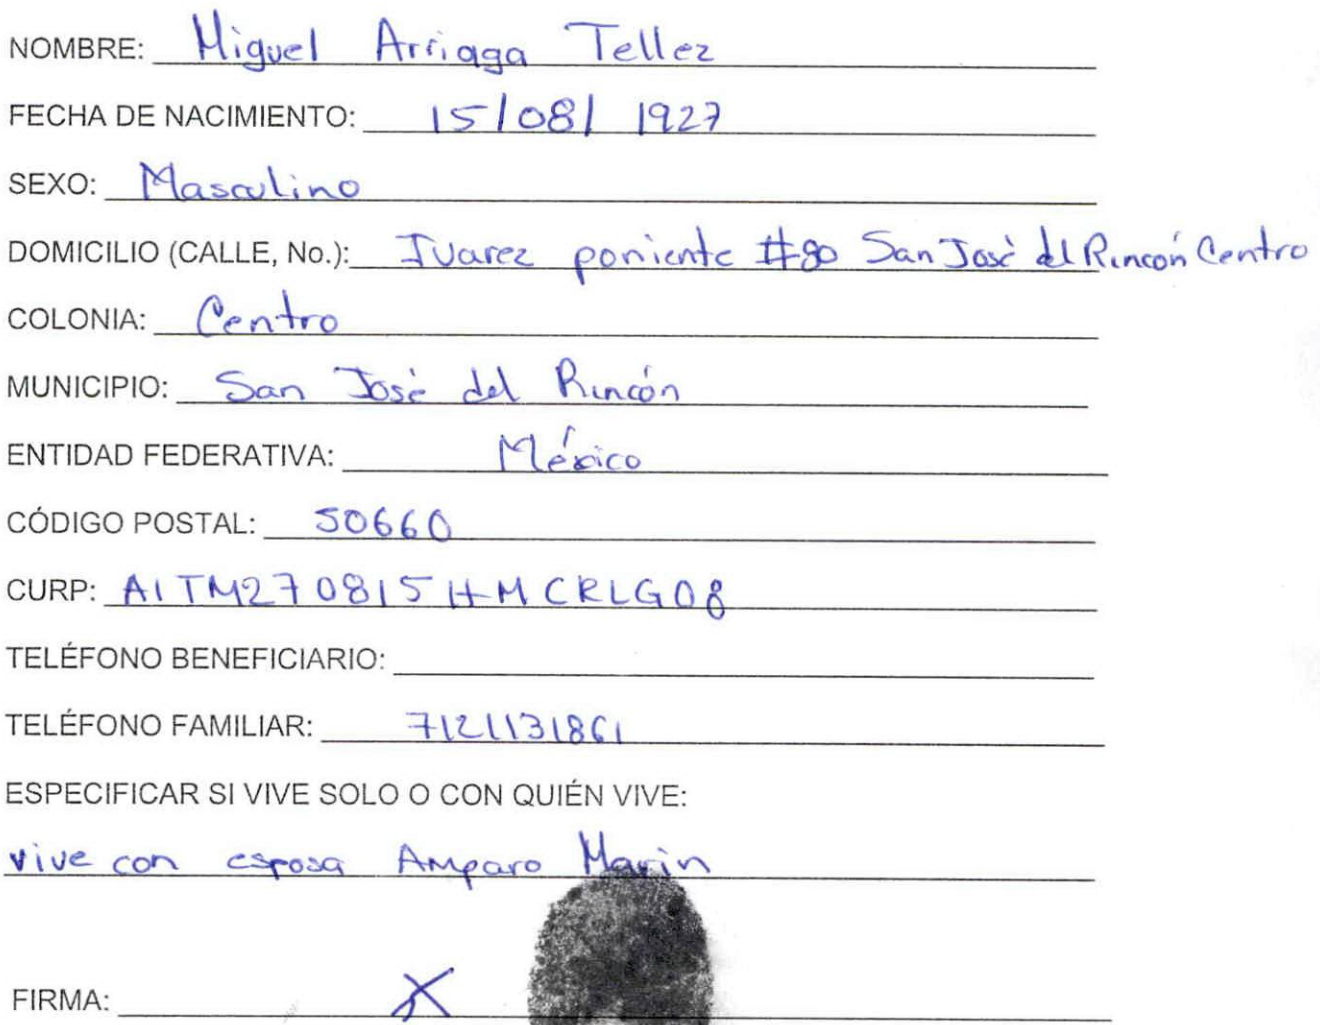 NOMBRE: Miguel Arriaga Tellez
FECHA DE NACIMIENTO: 15/08/ 1927
SEXO: Masculino
DOMICILIO (CALLE, No.): Juarez poniente #80 San José del Rincón Centro
COLONIA: Centro
MUNICIPIO: San José del Rincón
ENTIDAD FEDERATIVA: México
CÓDIGO POSTAL: 50660
CURP: AITM270815HMCRLG08
TELÉFONO BENEFICIARIO:
TELÉFONO FAMILIAR: 7121131861
ESPECIFICAR SI VIVE SOLO O CON QUIÉN VIVE:
vive con esposa Amparo Marin
FIRMA: X